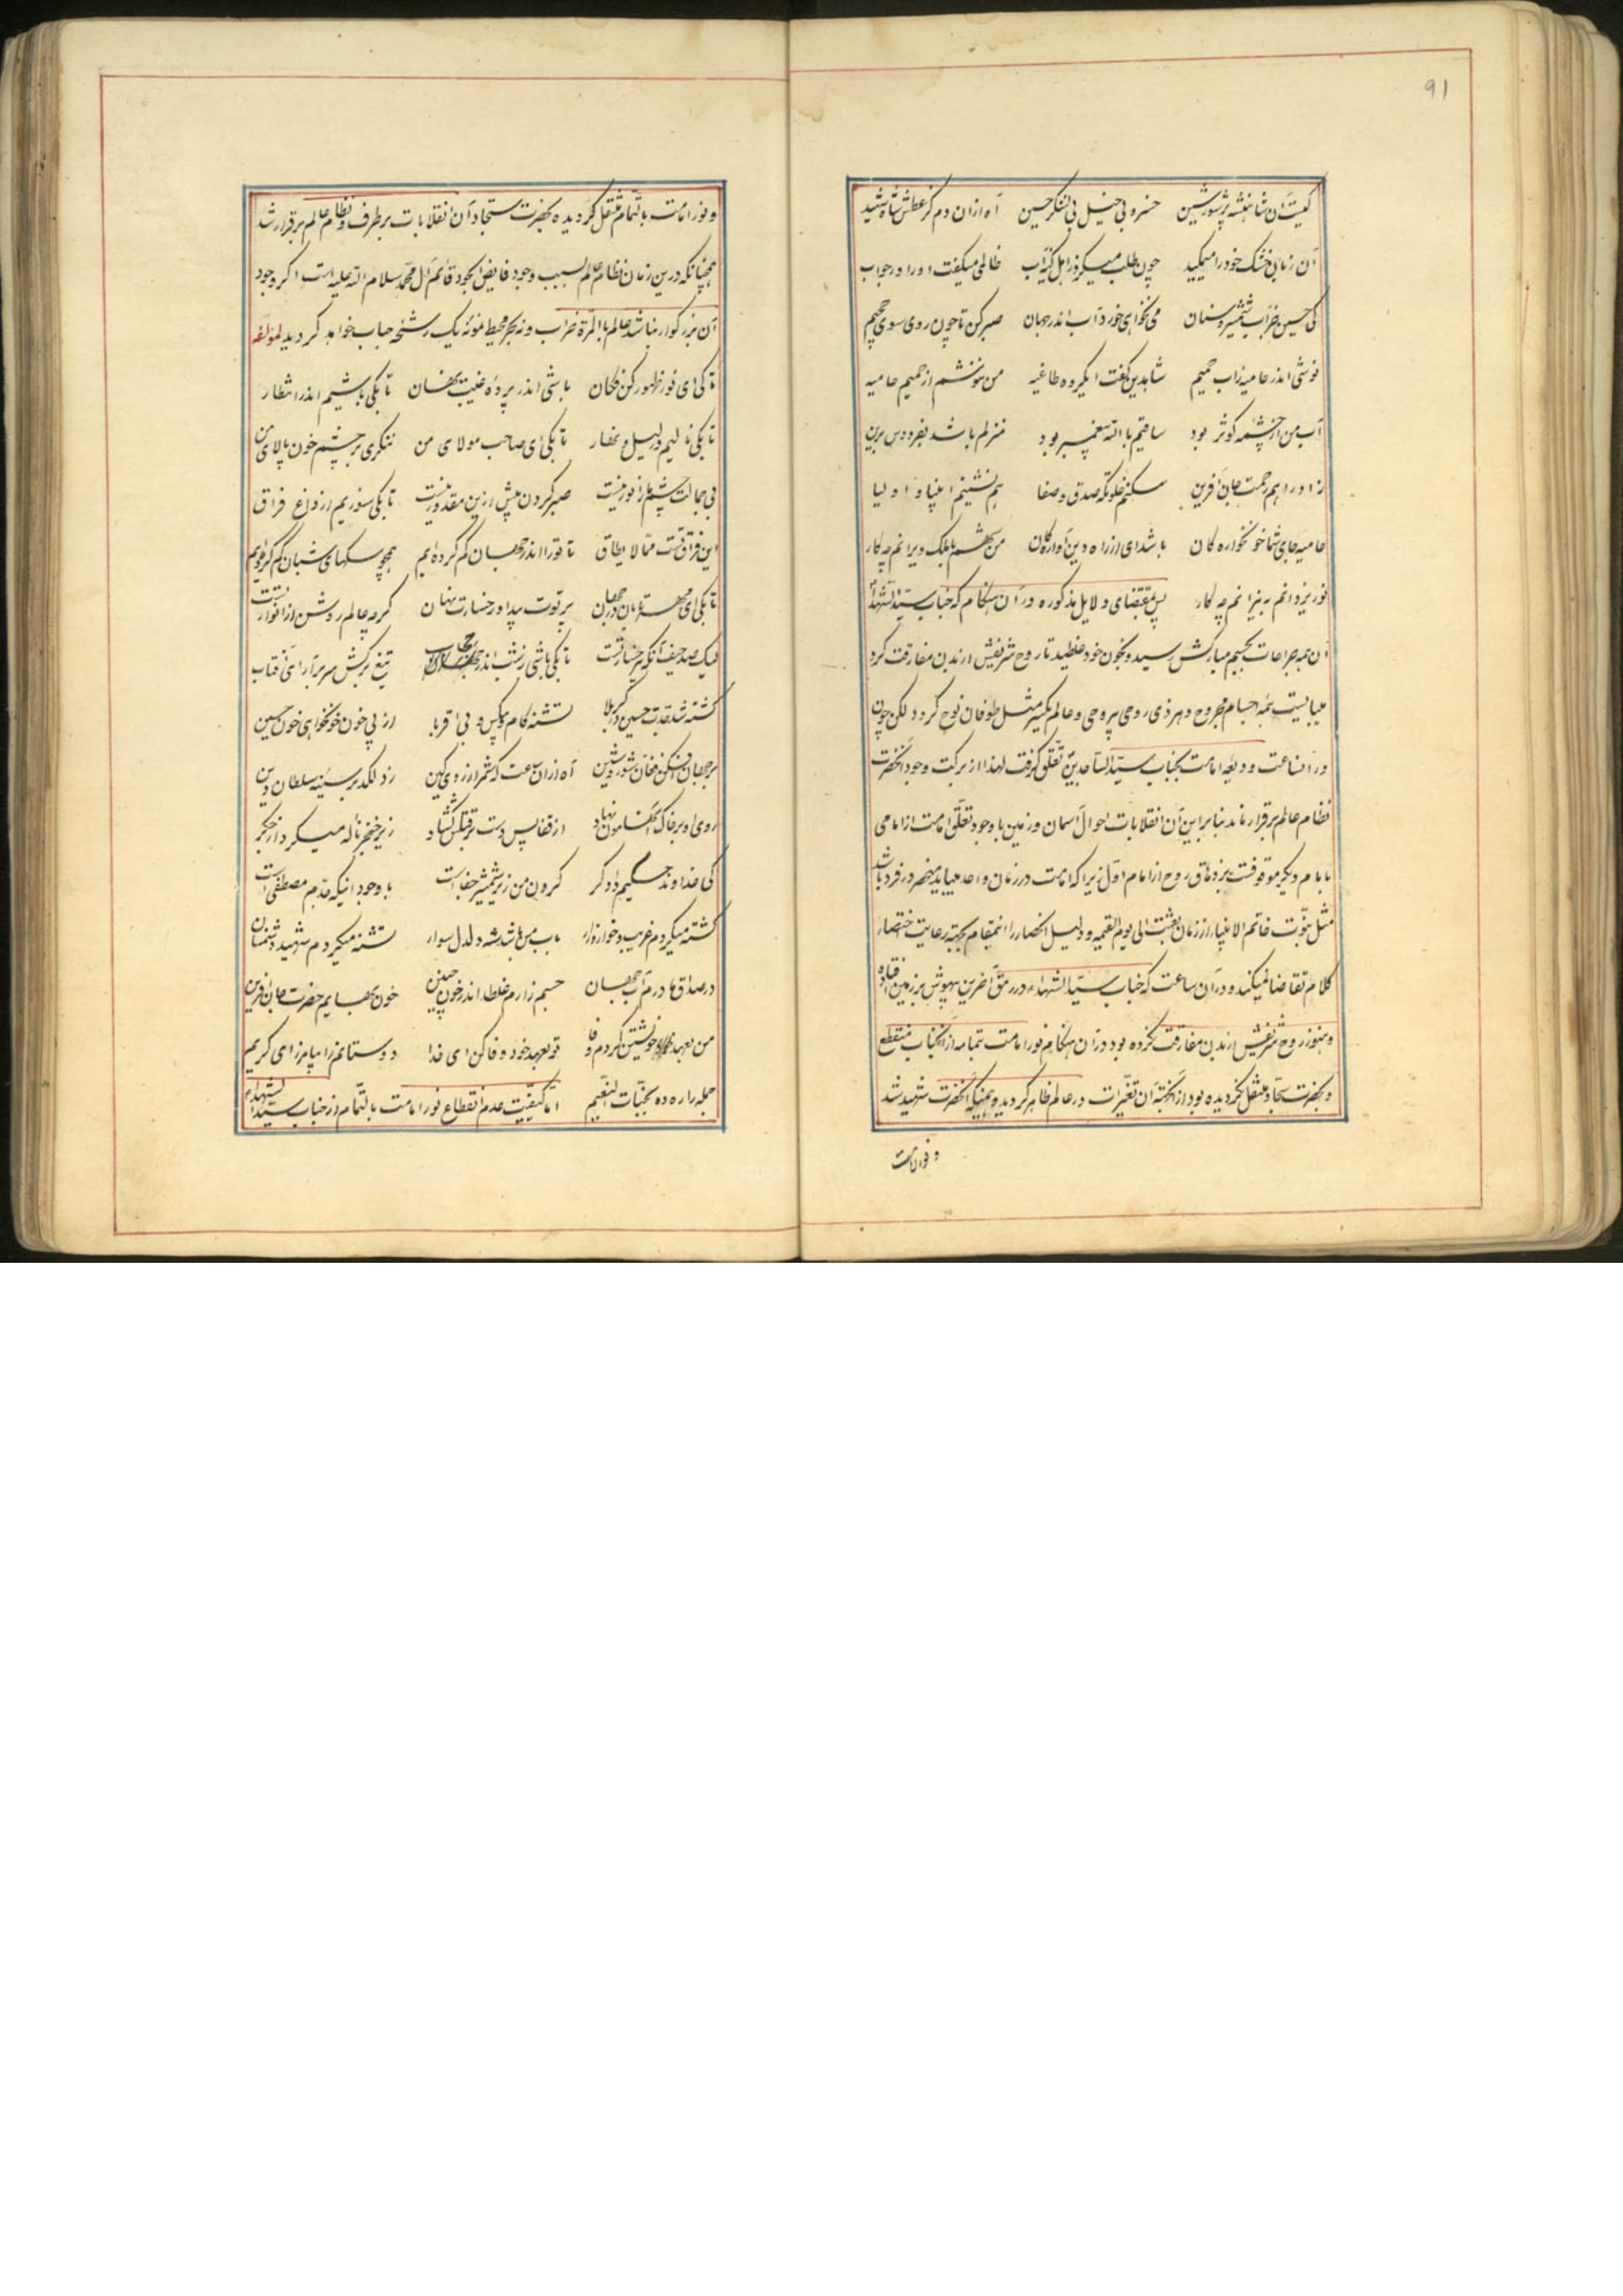 91
کیست آن شاهنشه پرشور و شین خسرو بی خیل بی لشکر حسین آه ازان دم کز عطش شاه شهید
آن زبان خشک خود را میمکید چون طلب میکرد ز اهل کینه آب ظالمی میکفت او را در جواب
کی حسین ضراب شمشیر و سنان می نخواهی خورد آب اندر جهان صبر کن تا چون روی سوی جحیم
نوشی اندر حامیه زاب حمیم شاه دین کفت ایکروه طاغیه من ننوشم از حمیم حامیه
آب من از چشمه کوثر بود ساقیم بالله پیغمبر بود منزلم باشد بفردوس برین
زاد راهم رحمت جان آفرین مسکنم خلوتکه صدق و صفا همنشینم انبیا و اولیا
حامیه جای شما خونخواره کان باشد ای از راه دین آواره کان من بهشتم با ملک ویرانم چه کار
نور یزدانم به نیرانم چه کار پس بمقتضای دلایل مذکوره در آن هنکام که جناب سید الشهداء
آن همه جراحات بجسم مبارکش رسید و بخون خود غلطید تا روح شریفش از بدن مفارقت کرد
میبایست همه اجسام مجروح و هر ذی روحی بیروح و عالم یکسر مثل طوفان نوح کردد لکن چون
در انساعت ودیعه امامت بجناب سید الساجدین تعلق کرفت لهذا از برکت وجود آنحضرت
نظام عالم برقرار ماند بنا براین آن انقلابات احوال آسمان و زمین با وجود تعلق امامت از امامی
بامام دیکر موقوفست بزهاق روح از امام اول زیرا که امامت در زمان واحد میباید منحصر در فرد باشد
مثل نبوت خاتم الانبیاء از زمان بعثت الی یوم القیمه و دلیل انحصار را اینمقام بجهة رعایت اختصار
کلام تقاضا نمیکند و در آن ساعت که جناب سید الشهداء در رمق آخرین بیهوش بر زمین افتاده
و هنوز روح شریفش از بدن مفارقت نکرده بود در آن هنکام نور امامت بتمامه از آنجناب منقطع
و بحضرت سجاد منتقل نکردیده بود از آنجهة آن تغیرات در عالم ظاهر کردید و همینکه آنحضرت شهید شد
و نور امامت
و نور امامت بالتمام منتقل کردیده بحضرت سجاد آن انقلابات برطرف و نظام عالم برقرار شد
همچنانکه درین زمان نظام عالم بسبب وجود فایض الجود قائم آل محمد سلام الله علیه است اکر وجود
آن بزرکوار نباشد عالم بالمرة خراب و نه بحر محیط نمونه یک رشحه حباب خواهد کردید لمؤلفه
تا کی ای نور ظهور کن فکان باشی اندر پرده غیبت نهان تا بکی باشیم اندر انتظار
تا بکی نالیم در لیل و نهار تا بکی ای صاحب مولای من ننکری بر چشم خون پالای من
بی جمالت چشم ما را نور نیست صبر کردن بیش ازین مقدور نیست تا بکی سوزیم از داغ فراق
این فراق تست مما لا یطاق تا تو را اندر جهان کم کرده ایم همچو سکهای شبان کم کرده ایم
تا بکی ای مهر تابان در جهان پرتوت پیدا و رخسارت نهان کرچه عالم روشن از انوار تست
لیک صد حیف آنکه بی رخسار تست تا بکی باشی ز شب اندر حجاب تیغ برکش سر برآر ای آفتاب
کشته شد جدت حسین در کربلا تشنه کام و بیکس و بی اقربا از پی خون خونخواهی خون حسین
بر جهان افکن فغان شور و شین آه ازان ساعت که شمر از روی کین زد لکد بر سینه سلطان دین
روی او بر خاک آنکه سامون نهاد از قفایش دست بر قتلش کشاد زیر خنجر ناله میکرد از جکر
کی خداوند حکیم دادکر کردن من زیر شمشیر جفا است با وجود اینکه جدم مصطفی است
کشته میکردم غریب و خوار و زار باب من باشد شه دلدل سوار تشنه میکردم شهید دشمنان
در صداق مادرم آب جهان جسم زارم غلطد اندر خون چنین خون بهایم حضرت جان آفرین
من بعهد خویشتن کردم وفا تو بعهد خود وفا کن ای خدا دوستانم را بیامرز ای کریم
جمله را ره ده بجنات النعیم اما کیفیت عدم انقطاع نور امامت بالتمام از جناب سید الشهداء